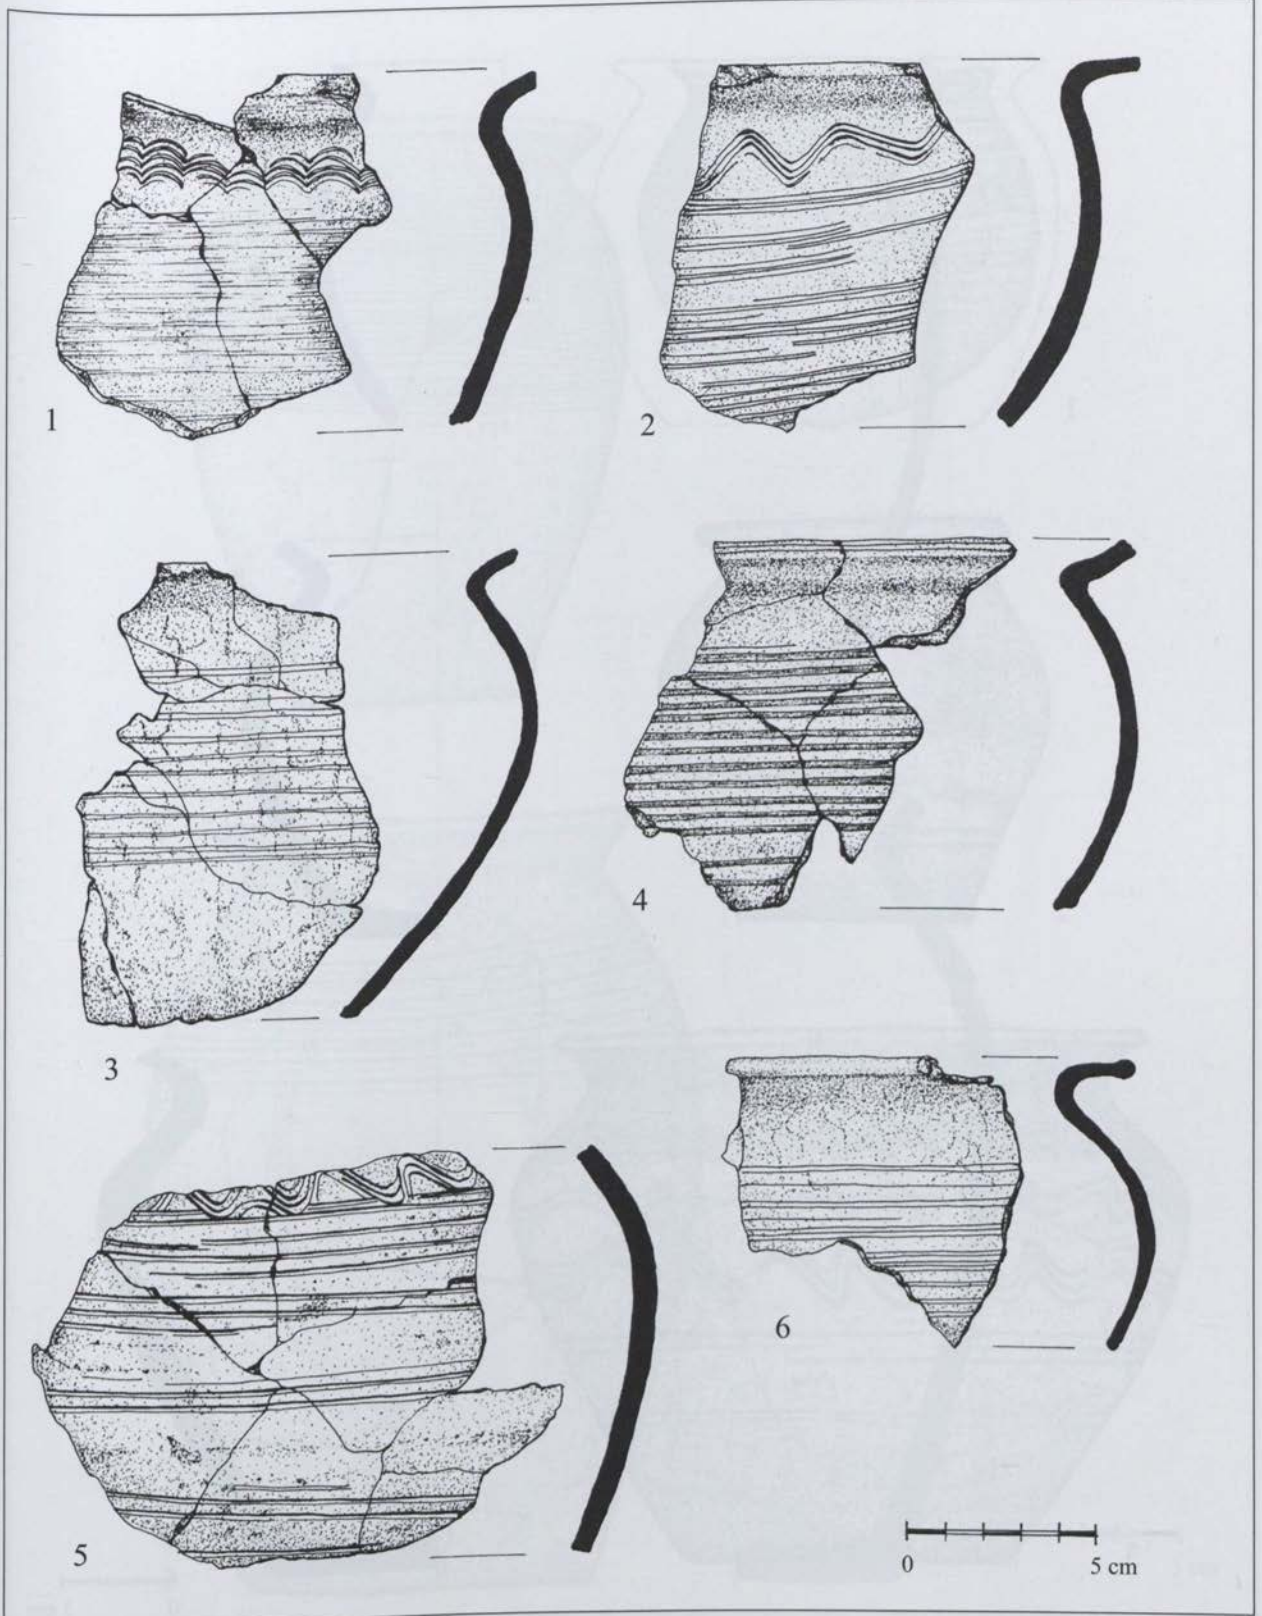 1
2
3
4
5
6
0 5 cm